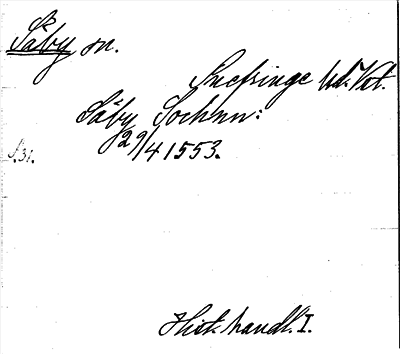 Säby sn.
Snefringe hd. Vstl.
Säby Sochnn:
29/4 1553.
S. 31.
Hist. handl. I.